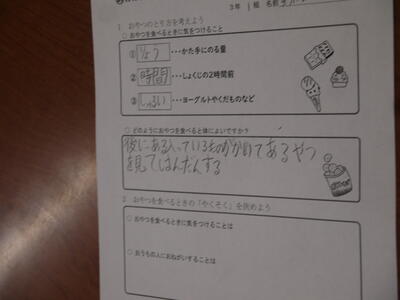 3年 1組 名前
1 おやつのとり方を考えよう
○おやつを食べるときに気をつけること
① りょう ・・・かた手にのる量
② 時間 ・・・しょくじの2時間前
③ しゅるい ・・・ヨーグルトやくだものなど
○どのようにおやつを食べると体によいですか？
後にある入っているものがかいてあるやつ
を見てはんだんする
2 おやつを食べるときの「やくそく」を決めよう
○おやつを食べるときに気をつけることは
○おうちの人におねがいすることは